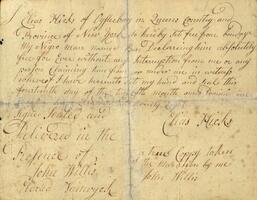 I Elias Hicks of Oysterbay in Queens County and
Province of New York do hereby set free from bondage
My Negro man named Ben Declaring him absolutely
free for Ever without any Interruption from me or any
person Claiming
whereof I have hereunto set my hand and seal this
fourteenth day of the month
Signed Sealed and
Delivered in the
Presence of
John Willis
Elias Hicks
a true Coppy taken
by me
John Willis